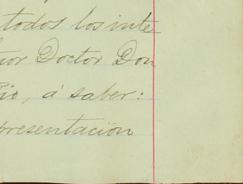 todos los inte
ñor Doctor Don
cio, á saber:
presentación